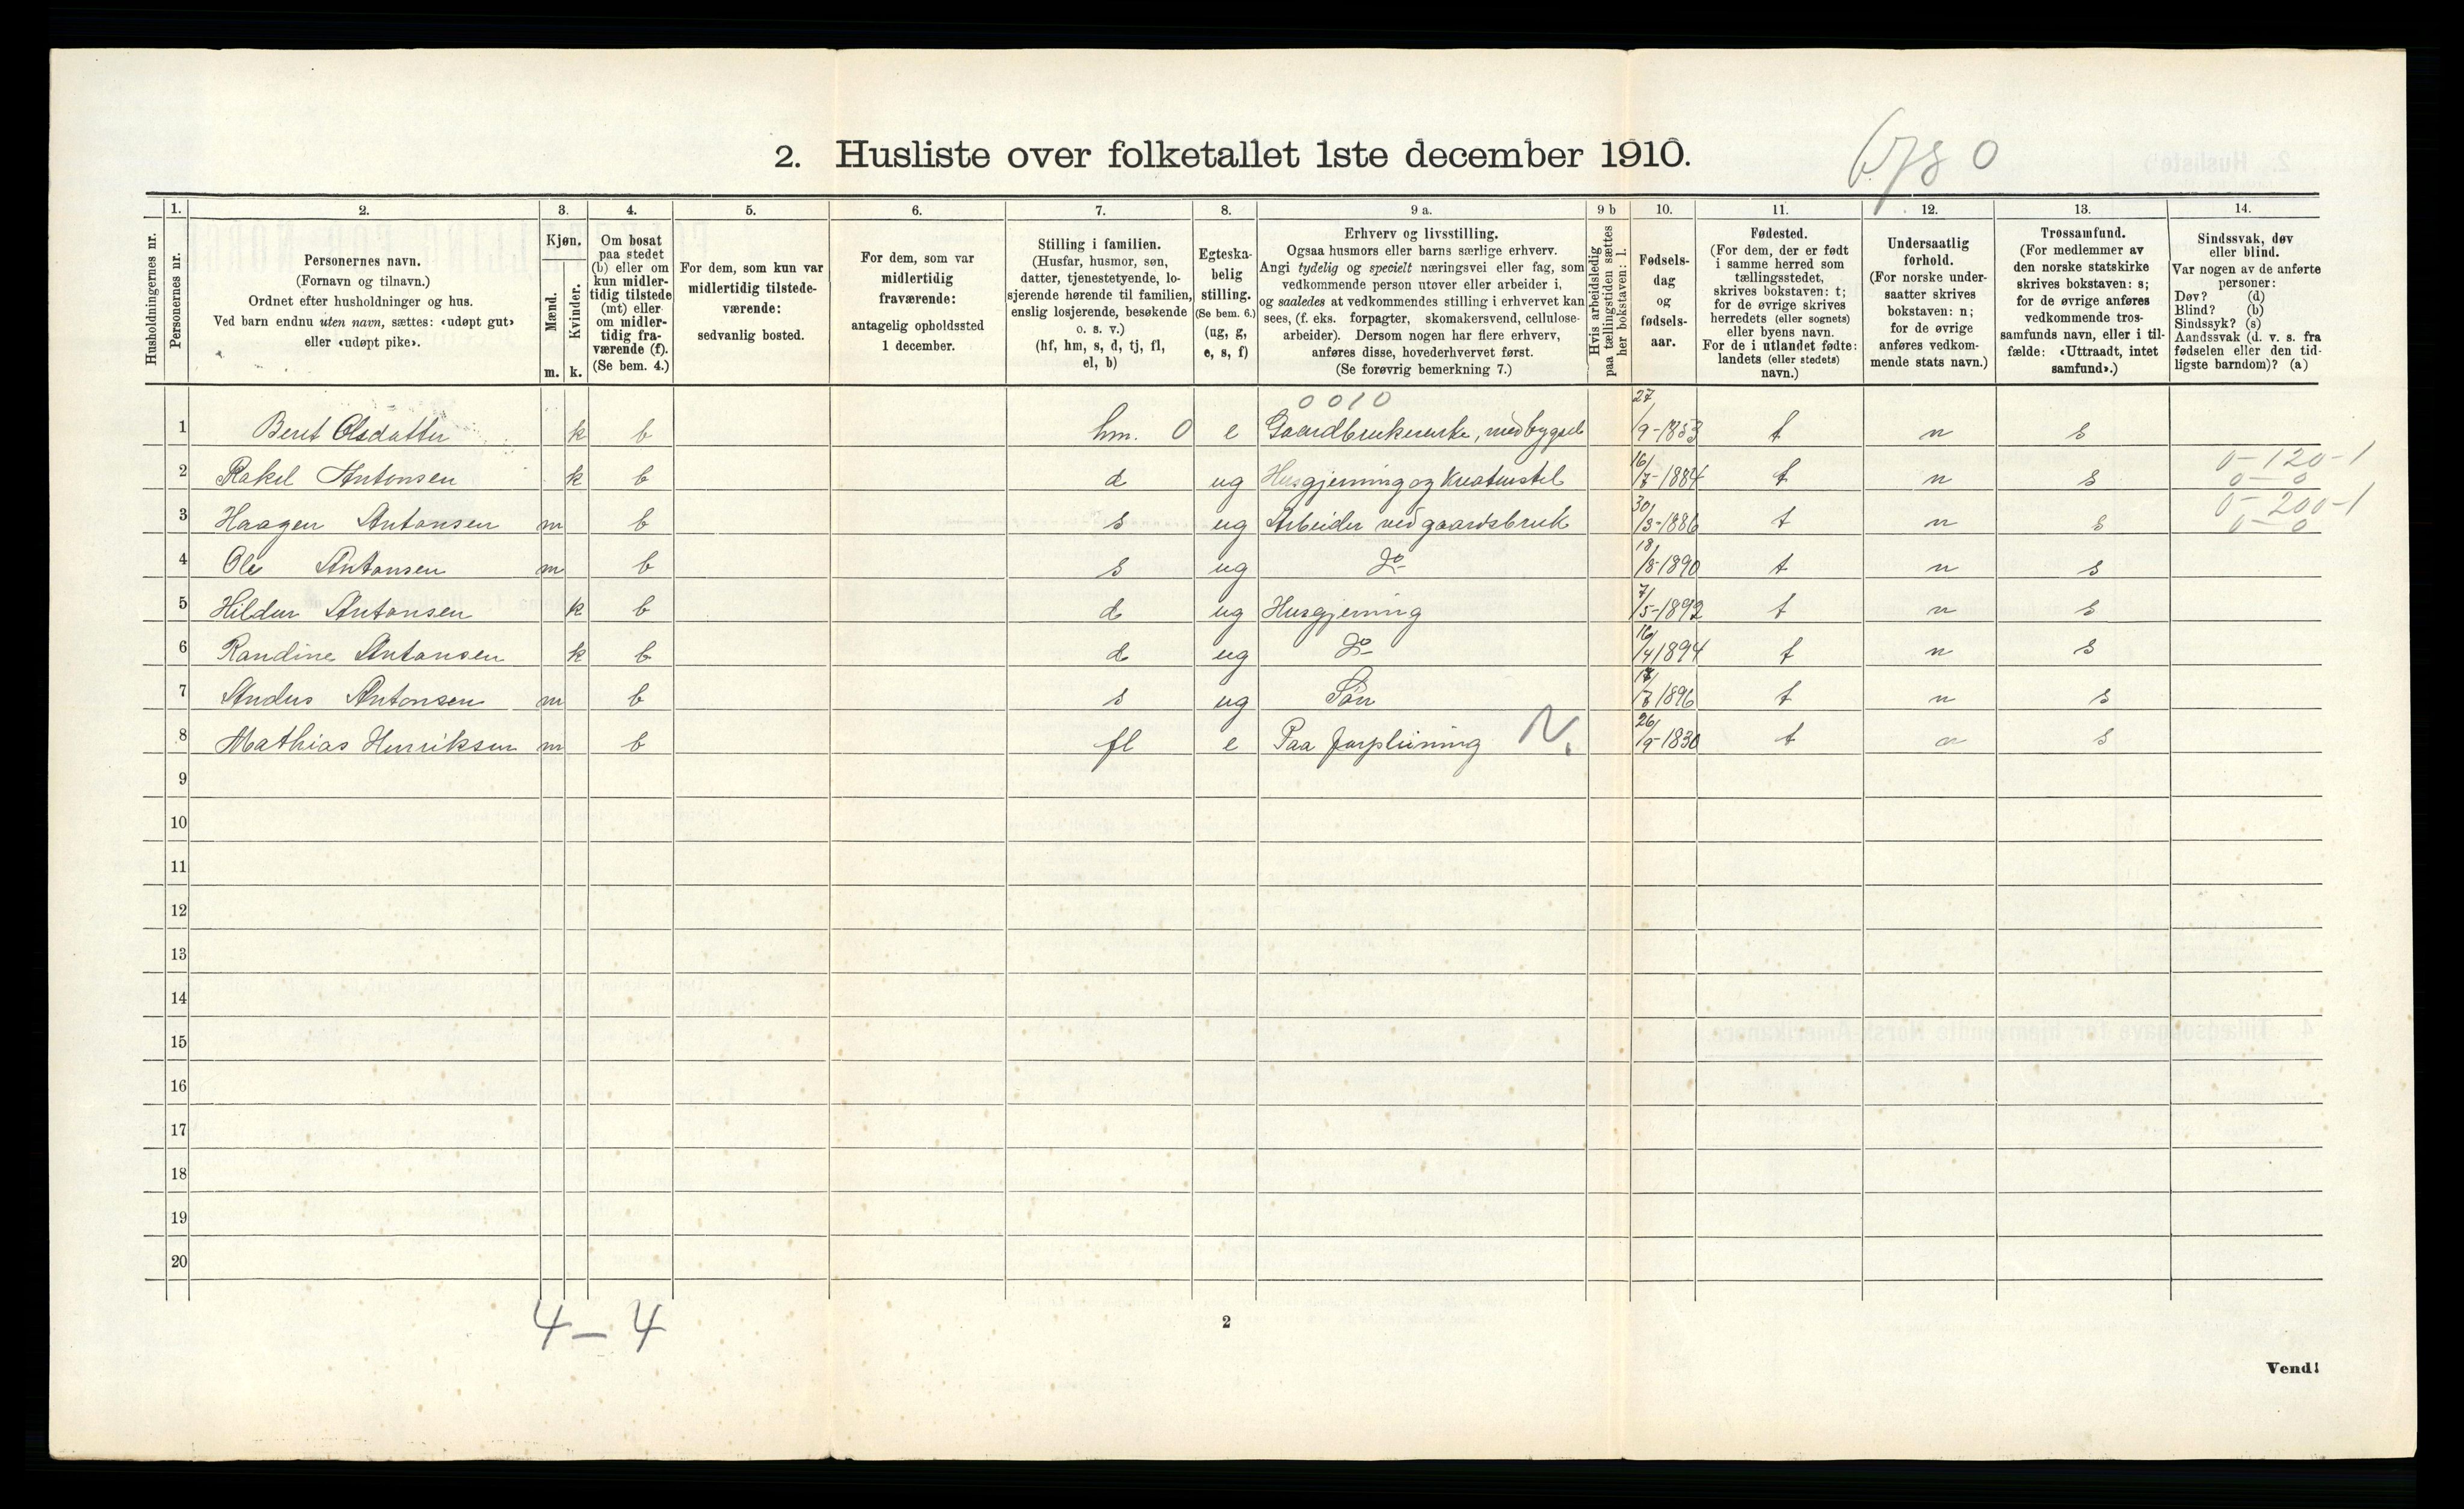 2. Husliste over folketallet 1ste december 1910.
Husholdningernes nr.
1. Personernes nr.
2. Personernes navn.
(Fornavn og tilnavn.)
Ordnet efter husholdninger og hus.
Ved barn endnu uten navn, sættes: «udøpt gut»
eller «udøpt pike».
3. Kjøn.
Mænd. m.
Kvinder. k.
4. Om bosat
paa stedet
(b) eller om
kun midler-
tidig tilstede
(mt) eller
om midler-
tidig fra-
værende (f).
(Se bem. 4.)
5. For dem, som kun var
midlertidig tilstede-
værende:
sedvanlig bosted.
6. For dem, som var
midlertidig
fraværende:
antagelig opholdssted
1 december.
7. Stilling i familien.
(Husfar, husmor, søn,
datter, tjenestetyende, lo-
sjerende hørende til familien,
enslig losjerende, besøkende
o. s. v.)
(hf, hm, s, d, tj, fl,
el, b)
8. Egteska-
belig
stilling.
(Se bem. 6.)
(ug, g,
e, s, f)
9 a. Erhverv og livsstilling.
Ogsaa husmors eller barns særlige erhverv.
Angi tydelig og specielt næringsvei eller fag, som
vedkommende person utøver eller arbeider i,
og saaledes at vedkommendes stilling i erhvervet kan
sees, (f. eks. forpagter, skomakersvend, cellulose-
arbeider). Dersom nogen har flere erhverv,
anføres disse, hovederhvervet først.
(Se forøvrig bemerkning 7.)
9 b Hvis arbeidsledig
paa tællingstiden sættes
her bokstaven: l.
10. Fødsels-
dag
og
fødsels-
aar.
11. Fødested.
(For dem, der er født
i samme herred som
tællingsstedet,
skrives bokstaven: t;
for de øvrige skrives
herredets (eller sognets)
eller byens navn.
For de i utlandet fødte:
landets (eller stedets)
navn.)
12. Undersaatlig
forhold.
(For norske under-
saatter skrives
bokstaven: n;
for de øvrige
anføres vedkom-
mende stats navn.)
13. Trossamfund.
(For medlemmer av
den norske statskirke
skrives bokstaven: s;
for de øvrige anføres
vedkommende tros-
samfunds navn, eller i til-
fælde: «Uttraadt, intet
samfund».)
14. Sindssvak, døv
eller blind.
Var nogen av de anførte
personer:
Døv? (d)
Blind? (b)
Sindssyk? (s)
Aandssvak (d. v. s. fra
fødselen eller den tid-
ligste barndom)? (a)
0010
1 Beret Olsdatter k b hm. 0 e Gaardbrukerenke, med bygsel 27/9-1853 t n s
2 Rakel Antonsen k b d ug Husgjerning og Kreaturstel 16/7-1884 t n s 0-120-1 0-0
3 Haagen Antonsen m b s ug Arbeider ved gaardsbruk 30/3-1886 t n s 0-200-1 0-0
4 Ole Antonsen m b s ug Do 18/8-1890 t n s
5 Hildur Antonsen k b d ug Husgjerning 7/5-1892 t n s
6 Randine Antonsen k b d ug Do 16/4 1894 t n s
7 Anders Antonsen m b s ug Søn 1896 t n s
8 Mathias Henriksen m b fl e Paa forpleining N. 26/9-1830 t s
9
10
11
12
13
14
15
16
17
18
19
20
4-4
2
Vend!